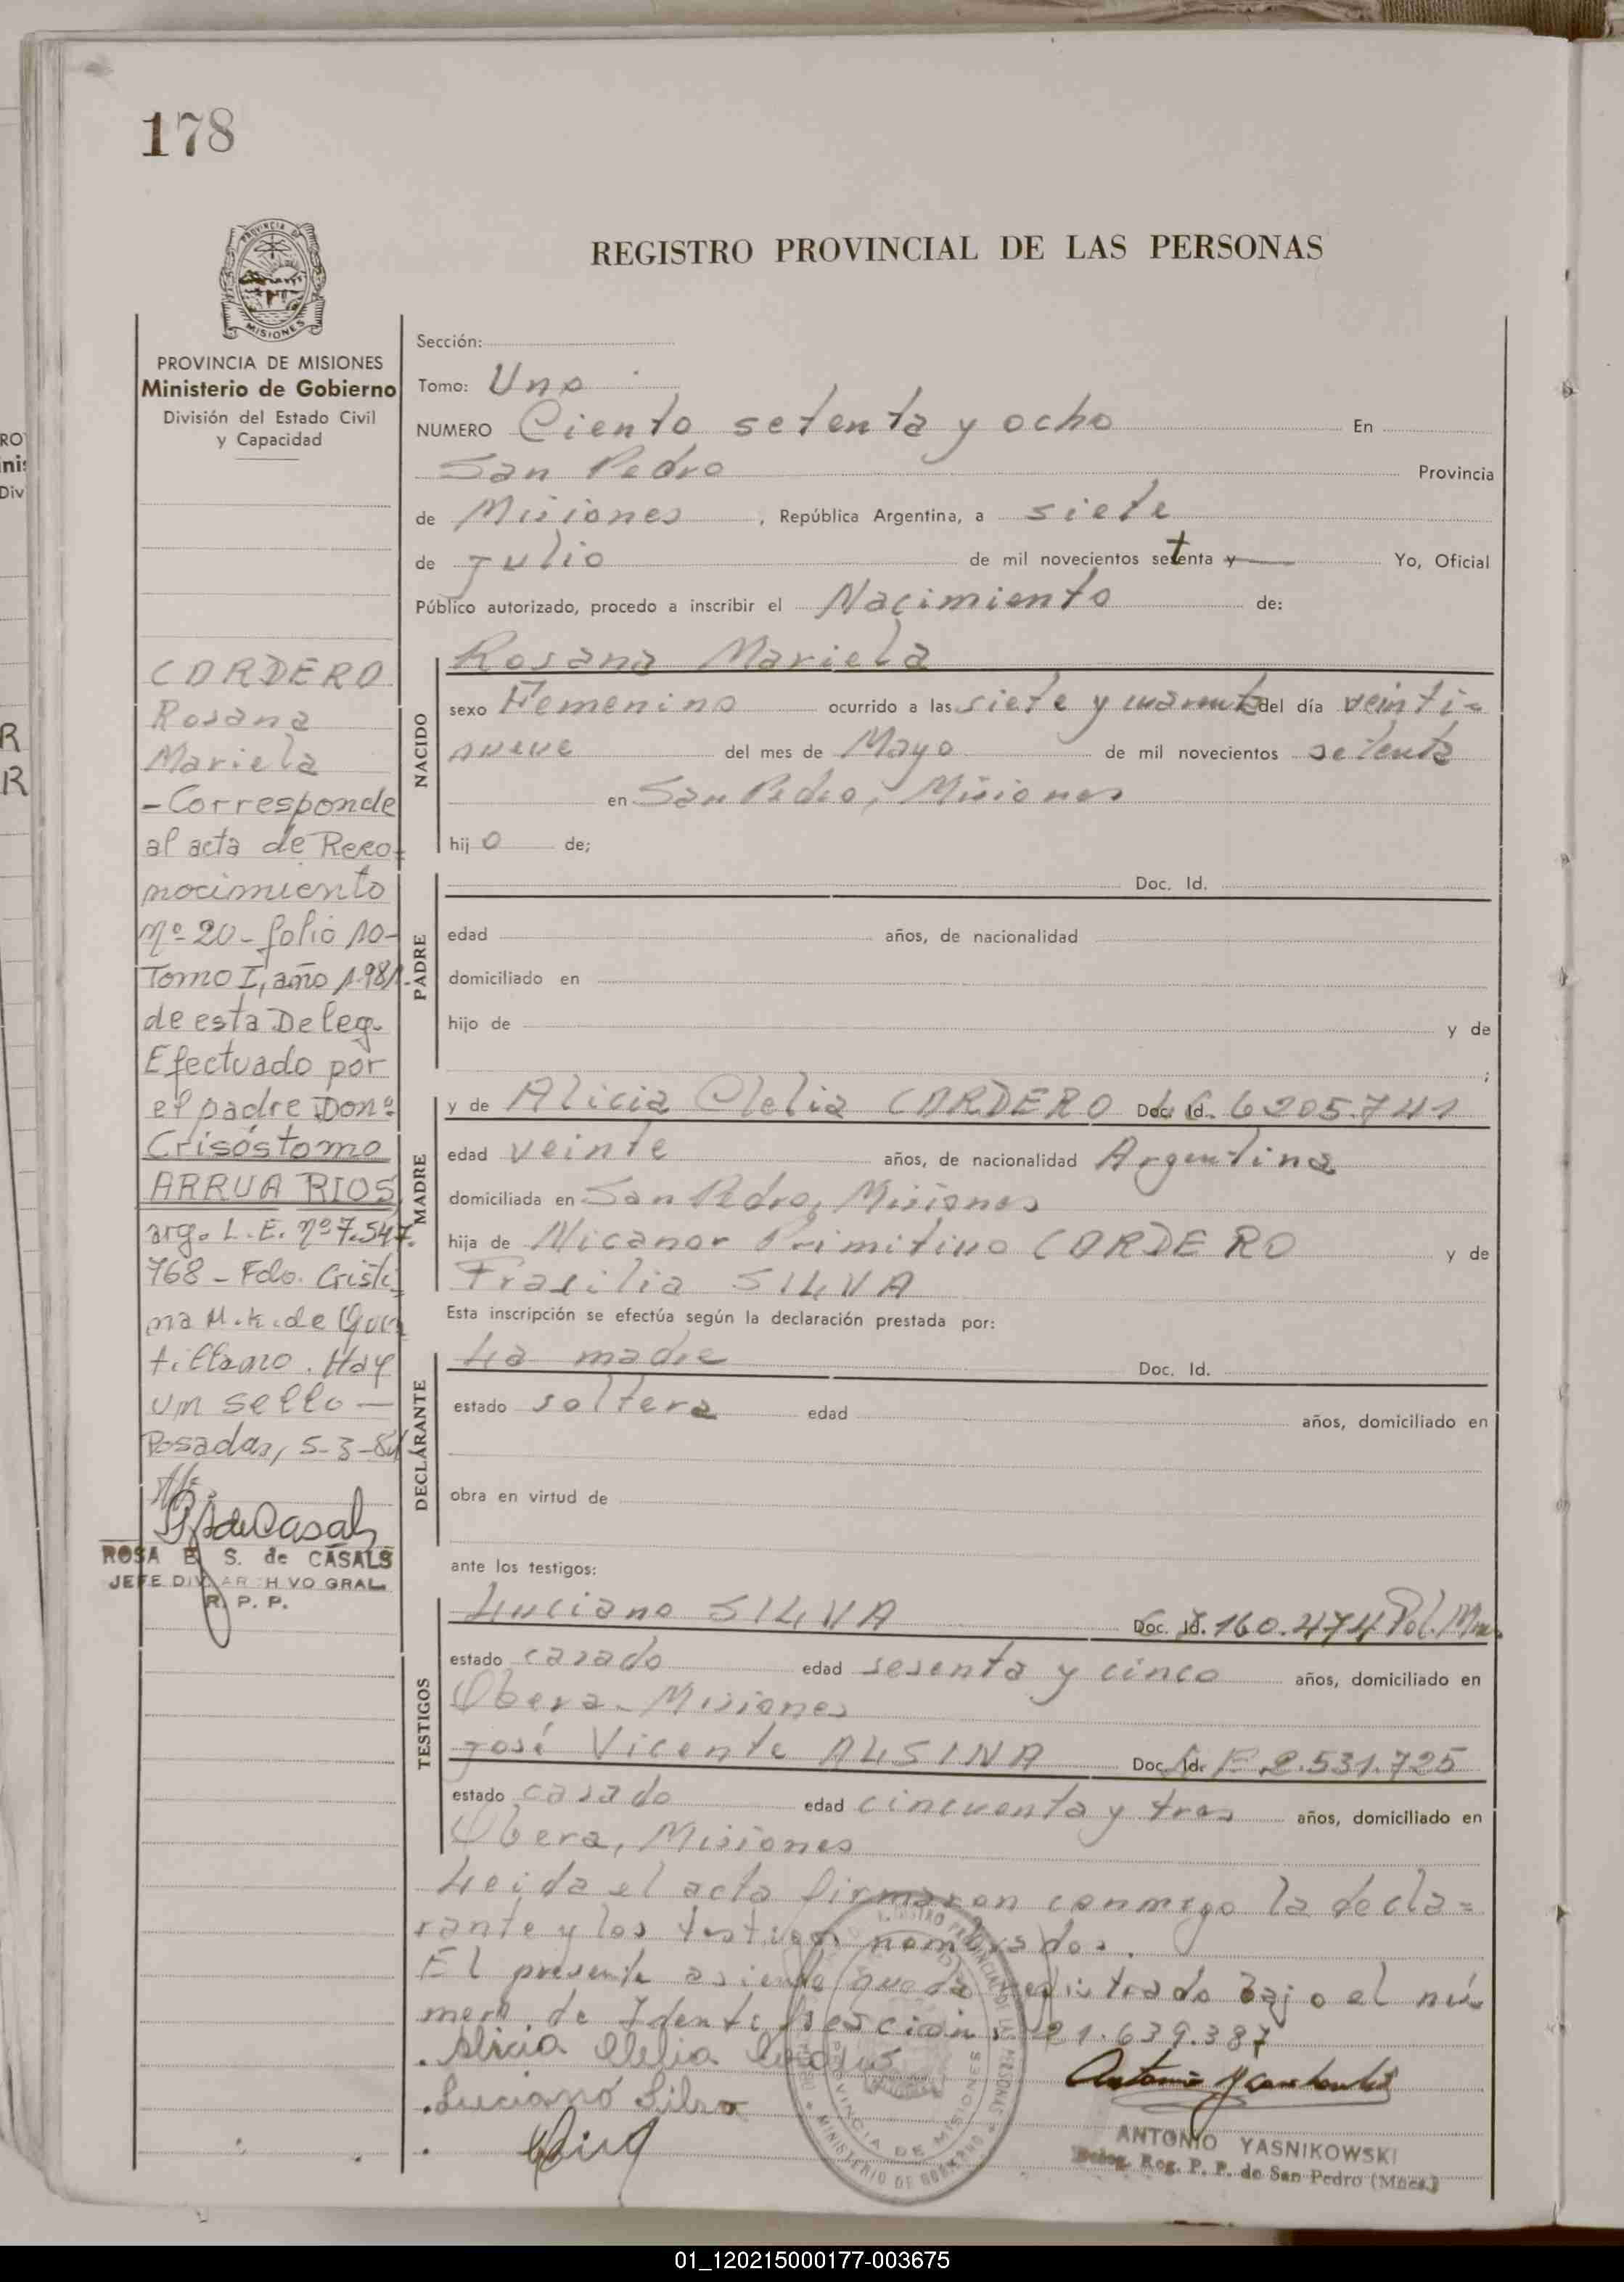 178
REGISTRO PROVINCIAL DE LAS PERSONAS
PROVINCIA DE MISIONES
Ministerio de Gobierno
División del Estado Civil
y Capacidad
CORDERO
Rosana
Mariela
- Corresponde
al acta de Reco-
nocimiento
nº 20 - folio 10-
Tomo I, año 1.981.
de esta Deleg.
Efectuado por
el padre Don:
Crisóstomo
ARRUA RIOS
arg. L.E. nº 7.547.
768 - Fdo. Cristi
na M.K. de
Hay
un sello -
Posadas, 5-3-84
ROSA E. S. de CASALS
JEFE DIV. ARCHIVO GRAL.
R. P. P.
Sección:
Tomo: Uno
NUMERO Ciento setenta y ocho En
San Pedro Provincia
de Misiones , República Argentina, a siete
de Julio de mil novecientos setenta y Yo, Oficial
Público autorizado, procedo a inscribir el Nacimiento de:
NACIDO
Rosana Mariela
sexo Femenino ocurrido a las siete y cuarenta del día veinti=
nueve del mes de Mayo de mil novecientos setenta
en San Pedro, Misiones
hij o de;
PADRE
Doc. Id.
edad años, de nacionalidad
domiciliado en
hijo de y de
;
MADRE
y de Alicia Clelia CORDERO Doc. Id. L.C. 6205.741
edad veinte años, de nacionalidad Argentina
domiciliada en San Pedro, Misiones
hija de Nicanor Primitivo CORDERO y de
Frasilia SILVA
Esta inscripción se efectúa según la declaración prestada por:
DECLARANTE
La madre Doc. Id.
estado soltera edad años, domiciliado en
obra en virtud de
ante los testigos:
TESTIGOS
Luciano SILVA Doc. Id. 160.474 Pol. Mnes
estado casado edad sesenta y cinco años, domiciliado en
Obera - Misiones
José Vicente ALSINA Doc. Id. L.E. 2.531.725
estado casado edad cincuenta y tres años, domiciliado en
Obera, Misiones
Leida el acta firmaron conmigo la decla=
rante y los testigos nombrados.
El presente asiento queda registrado bajo el nú
mero de Identificacion: 21.639.387
Alicia Clelia Cordero
Luciano Silva
ANTONIO YASNIKOWSKI
Deleg. Reg. P. P. de San Pedro (Mnes.)
PROVINCIA DE MISIONES
MINISTERIO DE GOBIERNO
01_120215000177-003675